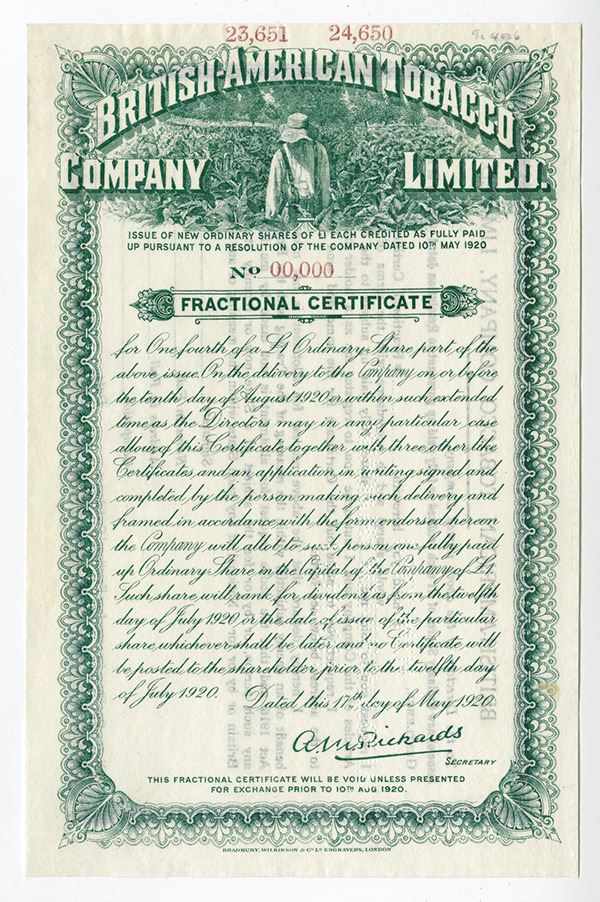 23,651 24,650
BRITISH-AMERICAN TOBACCO
COMPANY LIMITED.
ISSUE OF NEW ORDINARY SHARES OF £1 EACH CREDITED AS FULLY PAID
UP PURSUANT TO A RESOLUTION OF THE COMPANY DATED 10TH MAY 1920
No 00,000
FRACTIONAL CERTIFICATE
for One fourth of a £1 Ordinary Share part of the
above issue. On the delivery to the Company on or before
the tenth day of August 1920 or within such extended
time as the Directors may in any particular case
allow, of this Certificate together with three other like
Certificates, and an application in writing signed and
completed by the person making such delivery and
framed in accordance with the form endorsed hereon
the Company will allot to such person one fully paid
up Ordinary Share in the Capital of the Company of £1.
Such share will rank for dividend as from the twelfth
day of July 1920 or the date of issue of the particular
share whichever shall be later and no Certificate will
be posted to the shareholder prior to the twelfth day
of July 1920. Dated this 17th day of May 1920.
SECRETARY
THIS FRACTIONAL CERTIFICATE WILL BE VOID UNLESS PRESENTED
FOR EXCHANGE PRIOR TO 10TH AUG. 1920.
BRADBURY, WILKINSON & Co Ld ENGRAVERS, LONDON